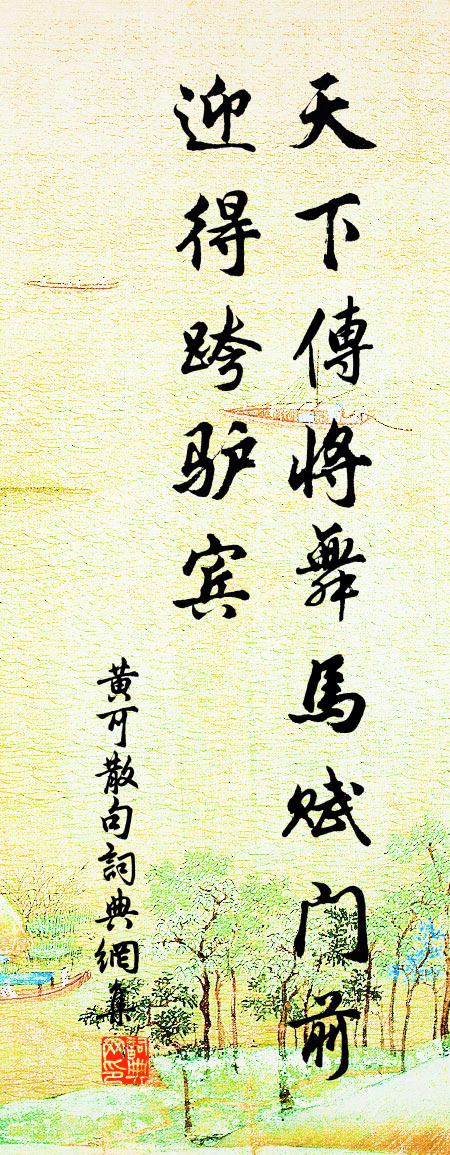 天下傳將舞馬賦门前
迎得跨驴宾
黄可散句詞典網集